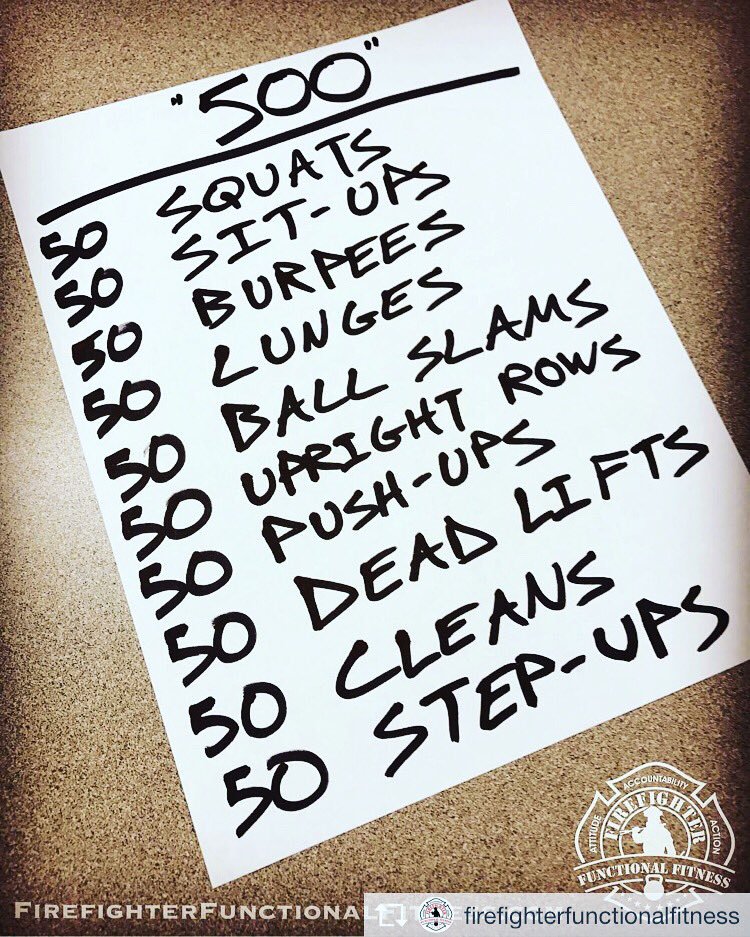 "500"
50 SQUATS
50 SIT-UPS
50 BURPEES
50 LUNGES
50 BALL SLAMS
50 UPRIGHT ROWS
50 PUSH-UPS
50 DEAD LIFTS
50 CLEANS
50 STEP-UPS
ACCOUNTABILITY
ATTITUDE
ACTION
FIREFIGHTER
FUNCTIONAL FITNESS
FIREFIGHTERFUNCTIONAL
firefighterfunctionalfitness